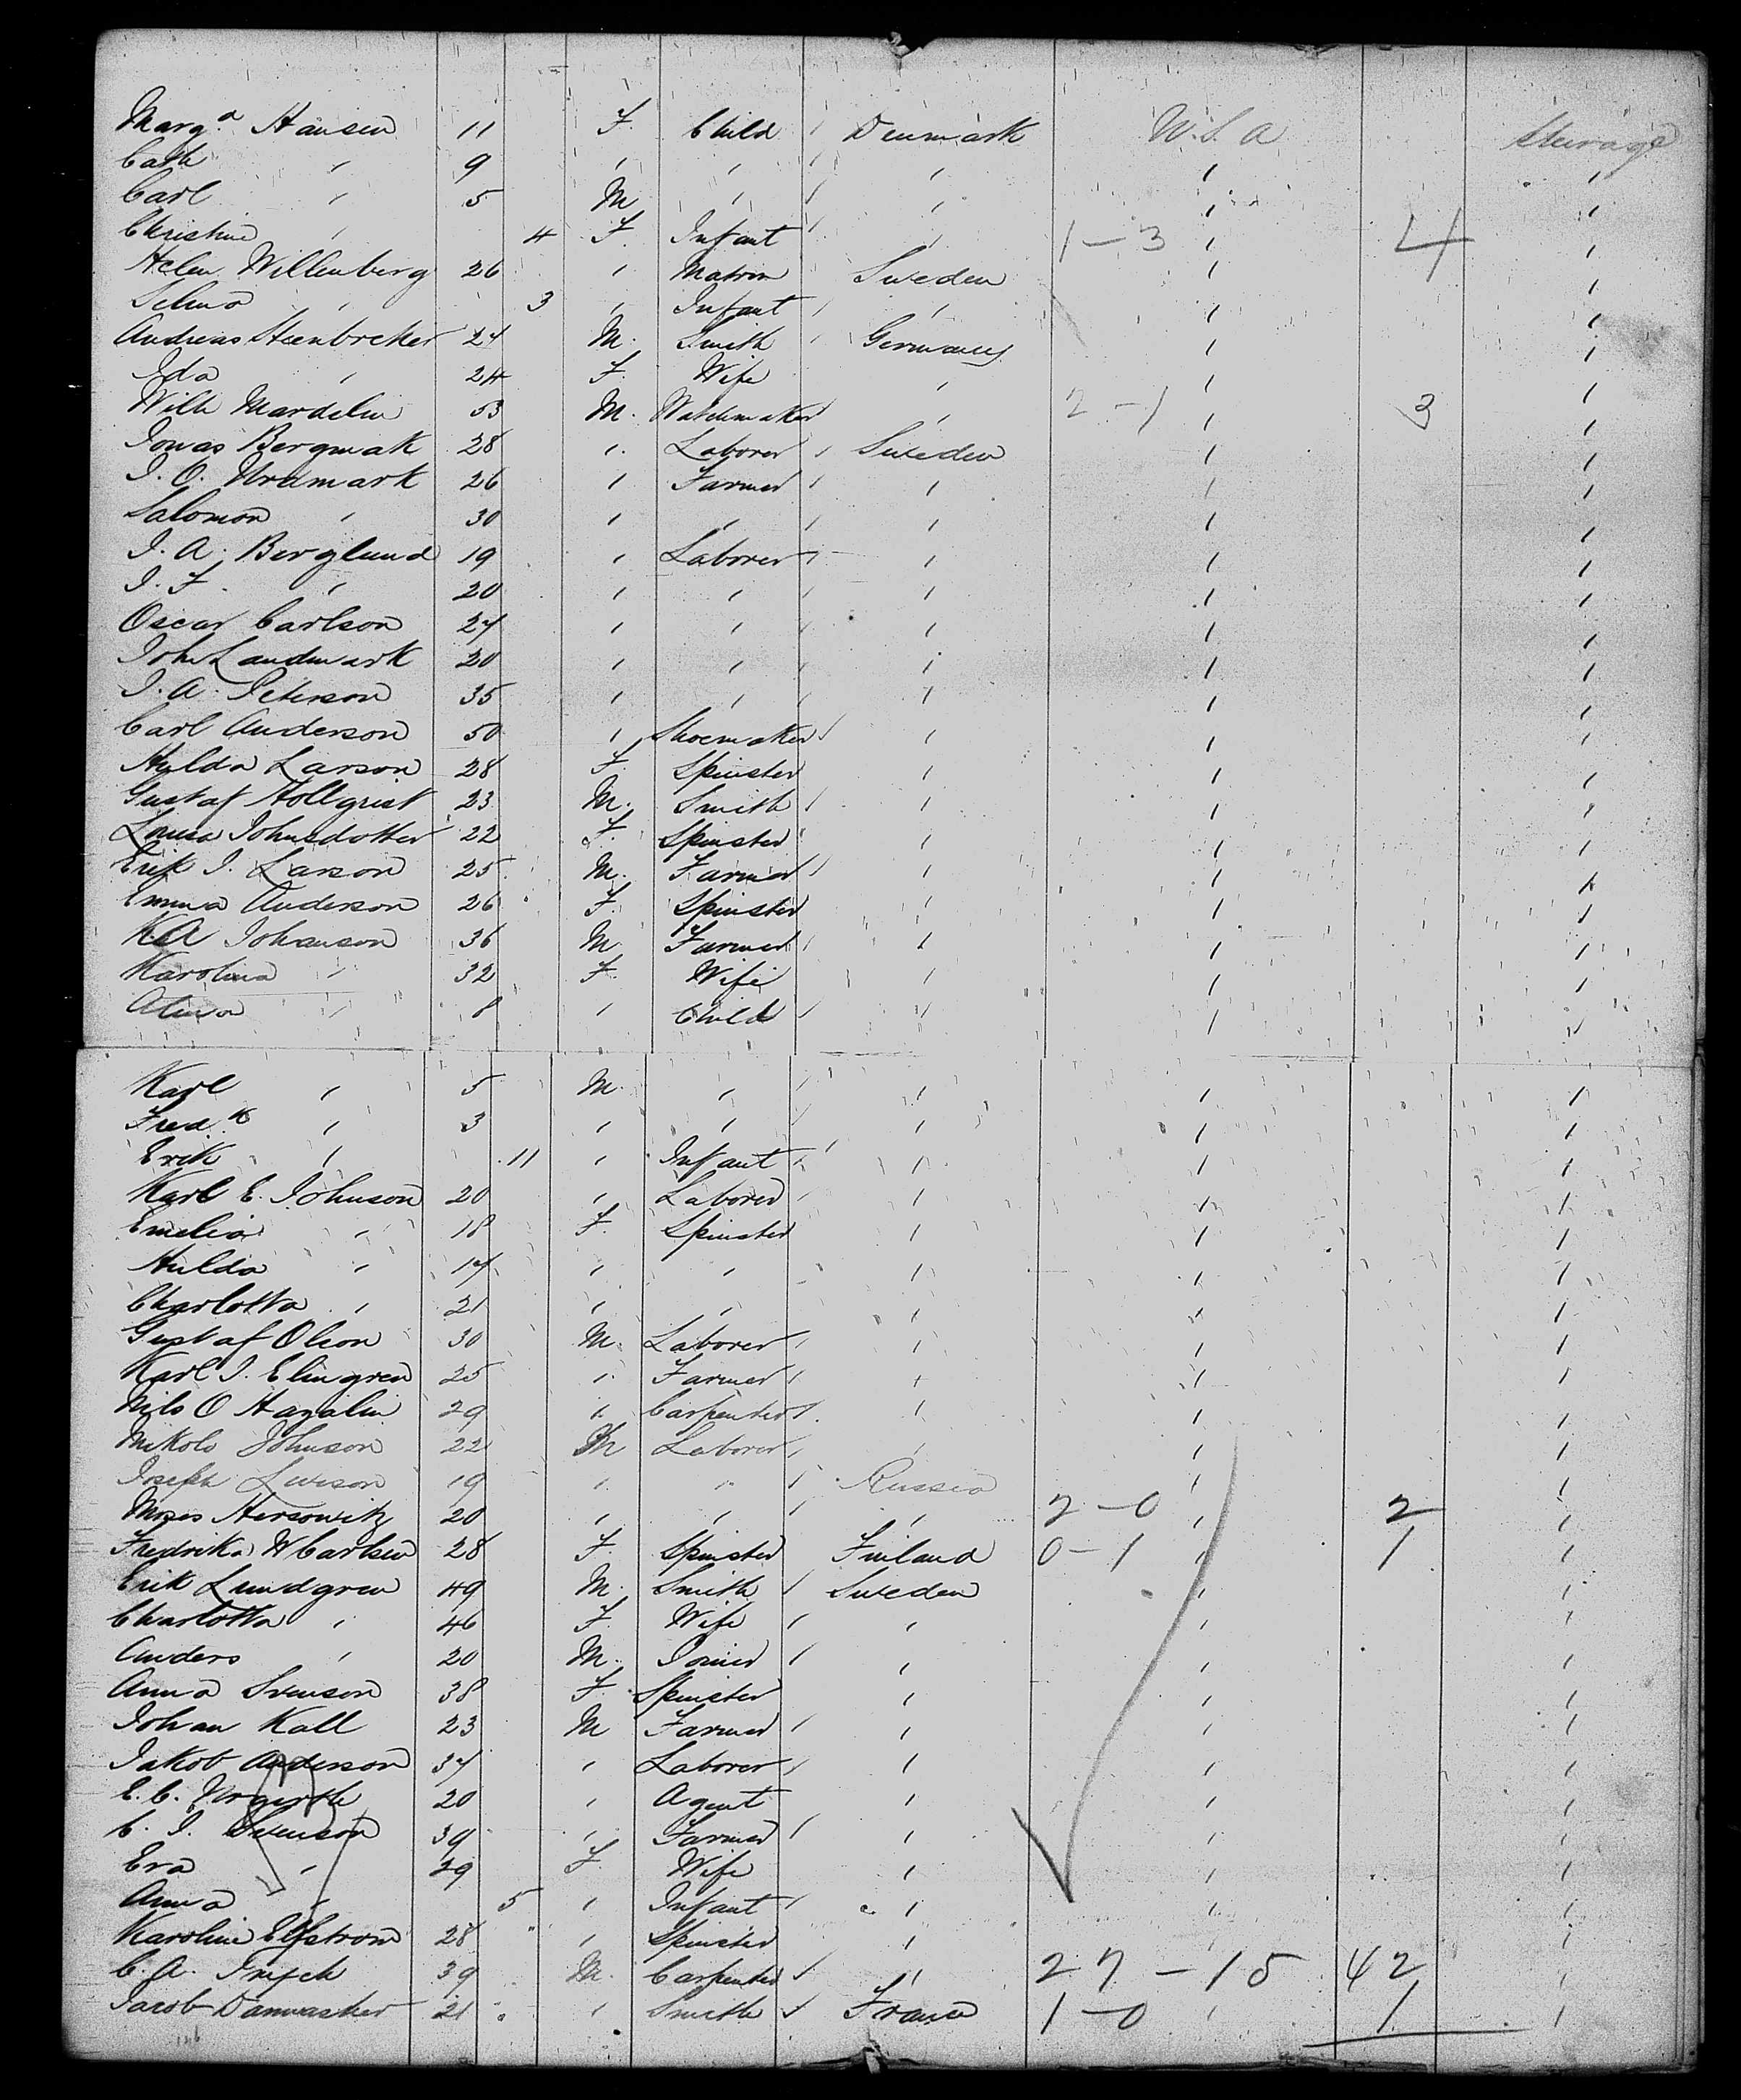 Marg.a Hansen 11 F. Child / Denmark U.S.A Steerage
Cath " 9 " " / " " "
Carl " 5 M " / " " "
Christine " 4 F. Infant / " 1-3 " 4 "
Helen Willenberg 26 " Matron Sweden " "
Selma " 3 " Infant / " " "
Andreas Steenbreker 27 M. Smith / Germany " "
Ida " 24 F. Wife " " "
Wilh Mardelin 53 M. Watchmaker / " 2-1 " 3 "
Jonas Bergmak 28 " Laborer / Sweden " "
J. O. 26 " Farmer / " " "
Salomon " 30 " " / " " "
J. A. Berglund 19 " Laborer / " " "
J. F. " 20 " " / " " "
Oscar Carlson 27 " " / " " "
Joh Landmark 20 " " / " " "
J. A. Peterson 35 " " / " " "
Carl Anderson 50 " Shoemaker / " " "
Hulda Larson 28 F. Spinster " " "
Gustaf Hollgrist 23 M. Smith / " " "
Louisa Johnsdotter 22 F. Spinster " " "
Erik J. Larson 25 M. Farmer / " " "
Emma Anderson 26 F. Spinster " " "
K.A Johanson 36 M Farmer / " " "
Karolina " 32 F. Wife " " "
Alma " 8 " Child / " " "
Karl " 5 M. " / " " "
Fred.k " 3 " " / " " "
Erik " 11 " Infant / " " "
Karl E. Johnson 20 " Laborer / " " "
Emelia " 18 F. Spinster " " "
Hulda " 17 " " " " "
Charlotta " 21 " " " " "
Gustaf Olson 30 M. Laborer / " " "
Karl J. Elingren 25 " Farmer / " " "
Nils O Hagalin 29 " Carpenter / " " "
Nikolo Johnson 22 M Laborer / " " "
Joseph Levison 19 " " / Russia " "
Moses Hersowitz 20 " " / " 2-0 " 2 "
Fredrika W Carlson 28 F. Spinster Finland 0-1 " 1 "
Erik Lundgren 49 M. Smith / Sweden " "
Charlotta " 46 F. Wife / " " "
Anders " 20 M. Joiner / " " "
Anna Svenson 38 F. Spinster " " "
Johan Kall 23 M Farmer / " " "
Jakob Anderson 37 " Laborer / " " "
E. C. 20 " Agent " " "
C. J. Svenson 39 " Farmer / " " "
Eva " 29 F. Wife " " "
Anna " 5 " Infant / " " "
Karolina Elfstrom 28 " Spinster " " "
C. A. 39 M. Carpenter / " 27-15 42 "
Jacob Danwasher 21 " Smith / France 1-0 " 1 "